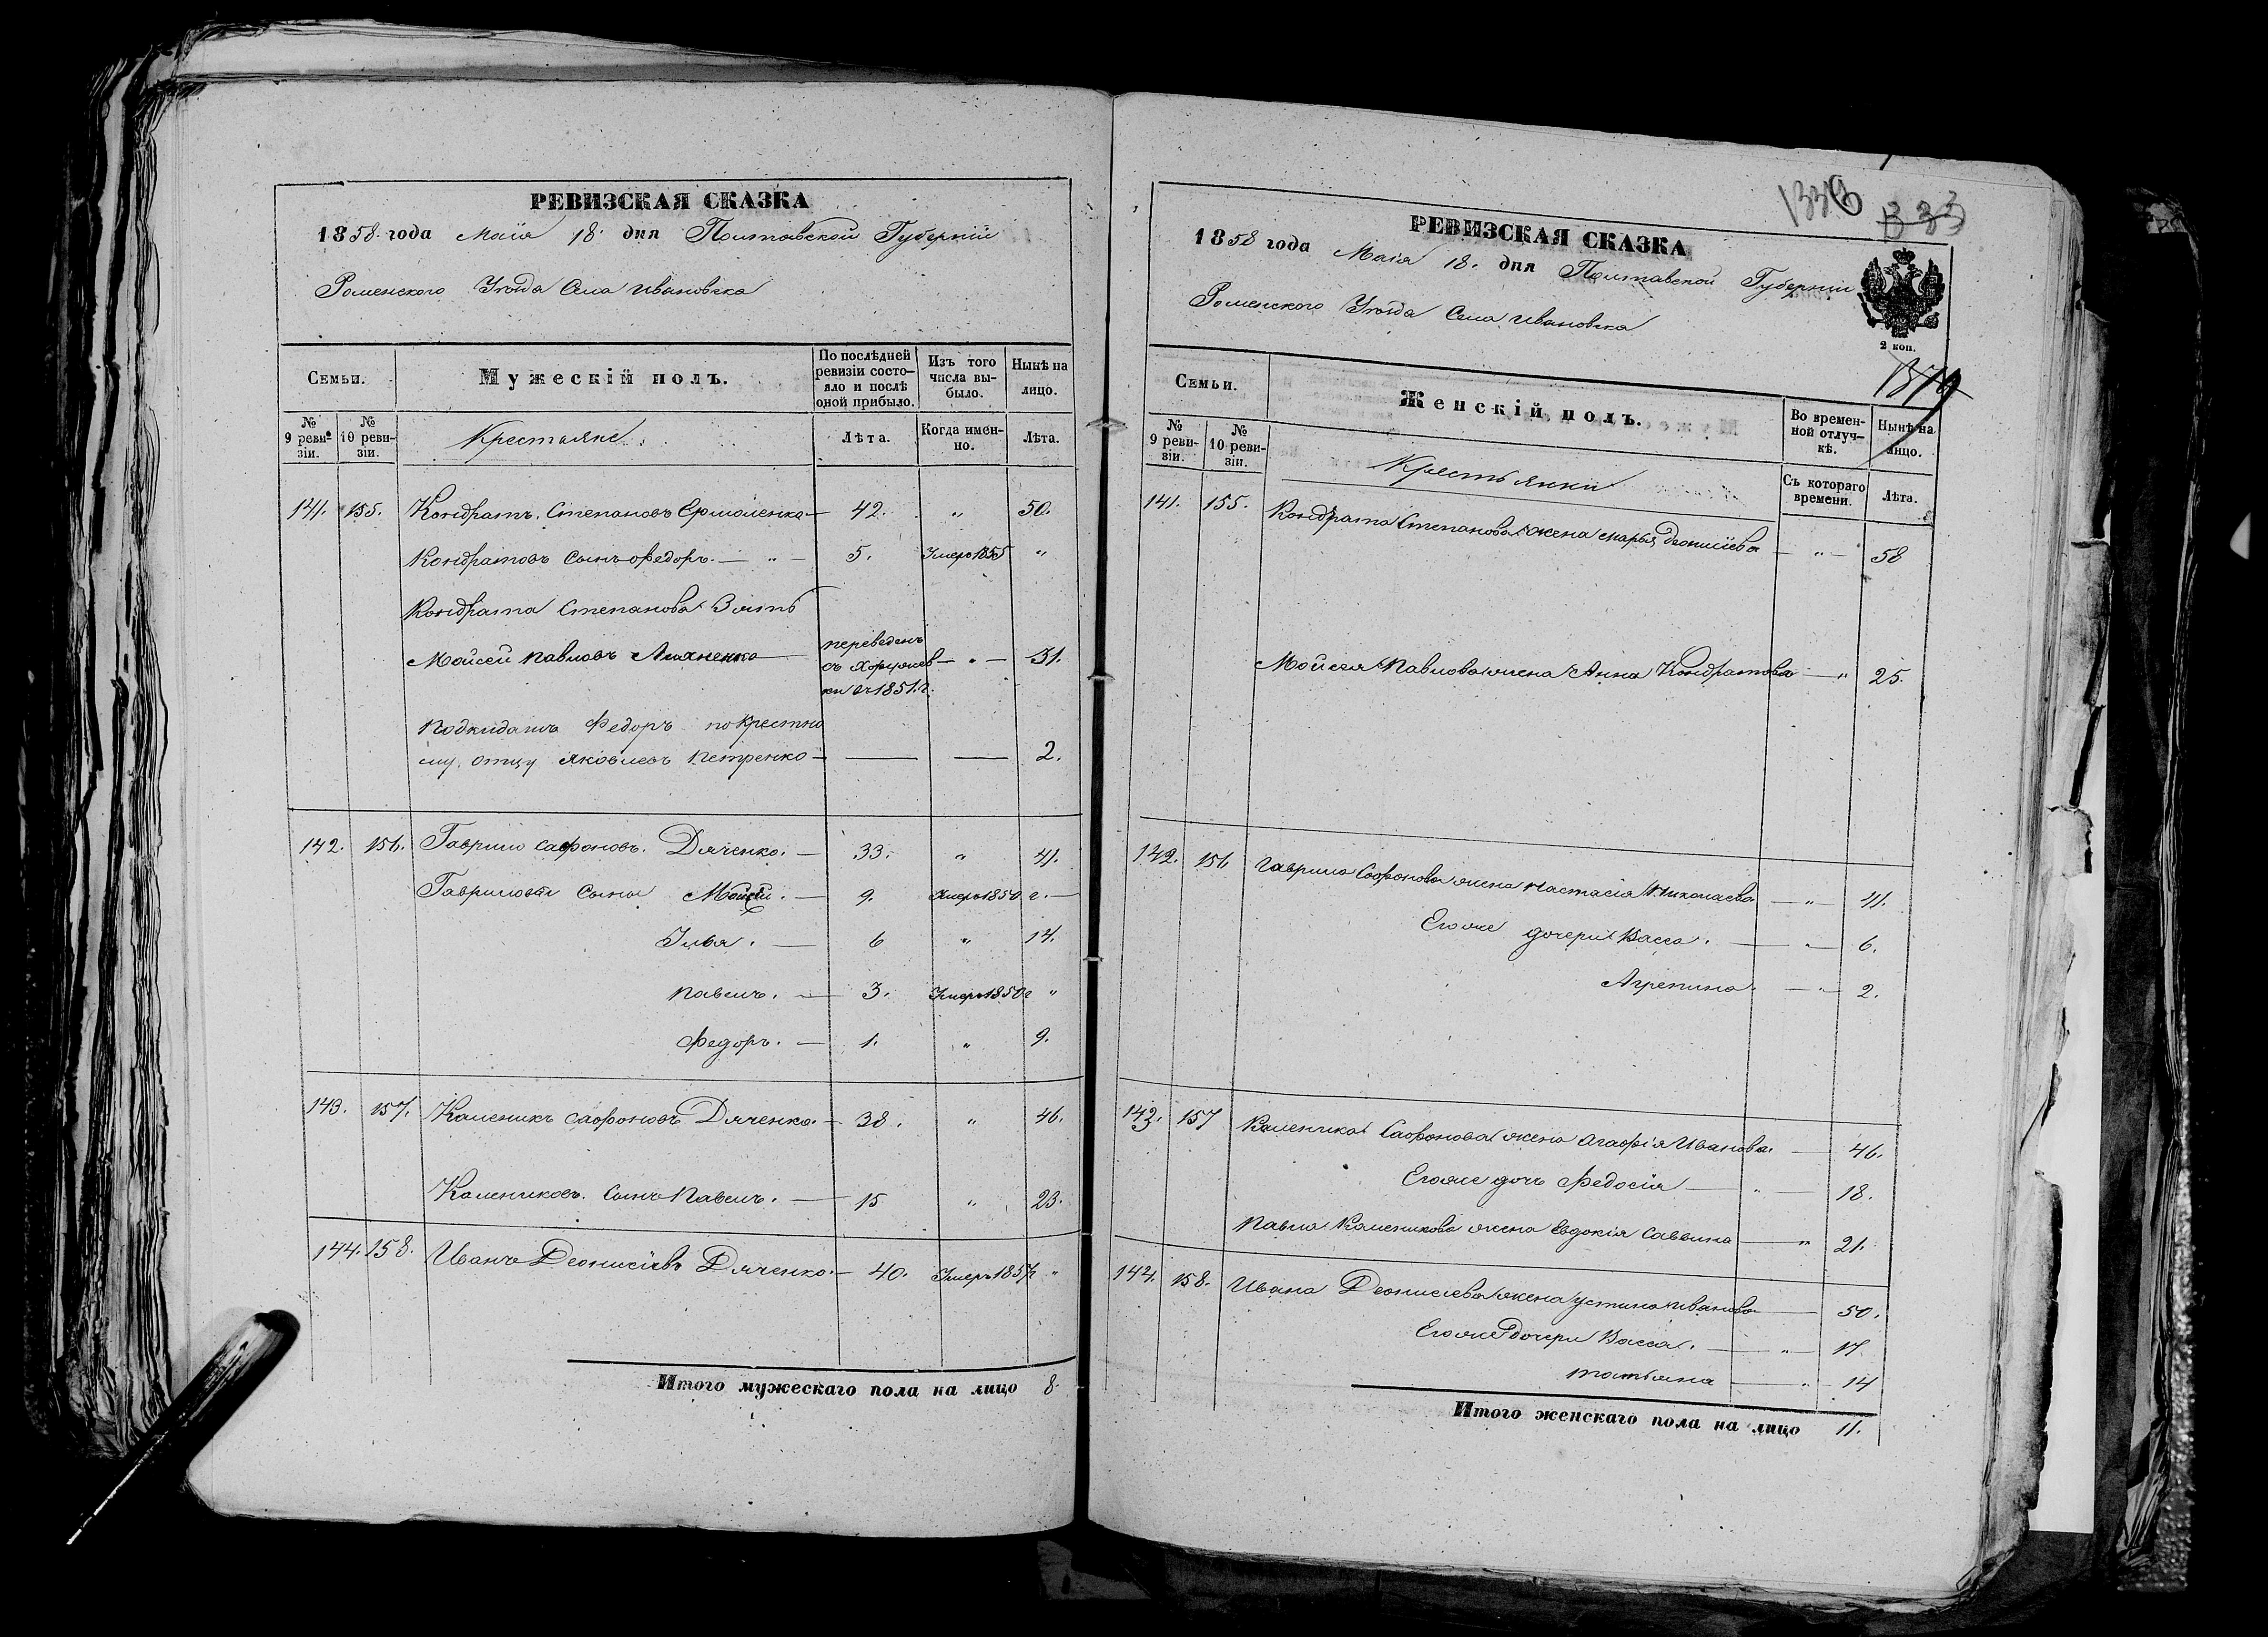 РЕВИЗСКАЯ СКАЗКА
1858 года Маія 18 дня Полтавской Губерніи
Роменского Уѣзда Села Ивановска
Семьи. Мужескій полъ. По послѣдней ревизіи состояло и послѣ оной прибыло. Изъ того числа выбыло. Нынѣ на лицо.
№ 9 ревизіи. № 10 ревизіи. Крестьяне Лѣта. Когда именно. Лѣта.
141. 155. Кондратъ Степановъ Ермоленко — 42. „ 50.
Кондратовъ сынъ Федоръ. — „ — 5. Умеръ 1855 „
Кондрата Степанова Зять
Мойсей Павловъ — переведенъ съ в 1851. г. — „ — 31.
Подкидашъ Федоръ по крестно
му отцу Яковлевъ Петренко — — — 2.
142. 156. Гаврило Сафоновъ Дяченко. — 33. „ 41.
Гавриловы сыны Мойсей. — 9. Умеръ 1850 г. —
Илья. — 6 „ 14.
Павелъ. — 3. Умеръ 1850 г „
Федоръ. — 1. „ 9.
143. 157. Каленикъ Сафоновъ Дяченко. — 38. „ 46.
Калениковъ сынъ Павелъ. — 15 „ 23.
144. 158. Иванъ Деонисіевъ Дяченко. — 40. Умеръ 1857 г „
Итого мужескаго пола на лицо 8.
1336 333
РЕВИЗСКАЯ СКАЗКА
1858 года Маія 18. дня Полтавской Губерніи
Роменского Уѣзда Села Ивановска
2 коп.
Семьи. Женскій полъ. Во временной отлучкѣ. Нынѣ на лицо.
№ 9 ревизіи. № 10 ревизіи. Крестьянки Съ котораго времени. Лѣта.
141. 155. Кондрата Степанова жена Марья Деонисіева — „ — 58
Мойсея Павлова жена Анна Кондратова — „ 25.
142. 156 Гаврила Сафонова жена Настасія Николаева — „ — 41.
Его же дочери Васса. — „ — 6.
Агрепина. — „ — 2.
143. 157 Каленика Сафонова жена Агафія Иванова. — 46.
Его же дочь Федосія — „ — 18.
Павла Каленикова жена Евдокія Саввина — „ 21.
144. 158. Ивана Деонисіева жена Устина Иванова — 50.
Его же дочери Васса. — „ — 17
Татьяна — „ — 14
Итого женскаго пола на лицо 11.